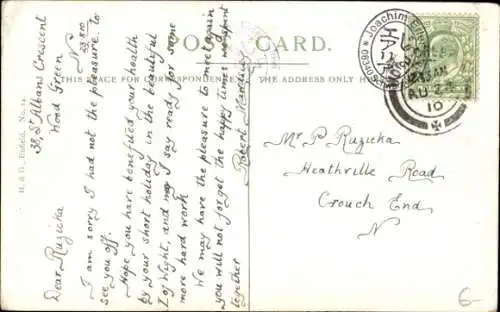 POST CARD.
THIS PLACE FOR CORRESPONDENCE
THE ADDRESS ONLY HERE
H. & G., Enfield, No. 14.
38, St Albans Crescent
Wood Green
N
Dear Ruzicka
I am sorry I had not the pleasure to
see you off.
Hope you have benefited your health
by your short holiday in the beautiful
I of Wight, and may I say ready for some
more hard work
We may have the pleasure to meet again
you will not forget the happy times we spent
together
Robert
Mr P Ruzicka
Heathville Road
Crouch End
N
AU 2
10
Joachim
6-